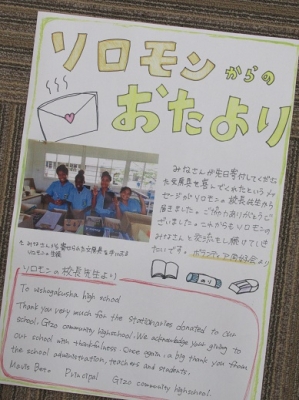 ソロモンからの
おたより
みなさんが先日寄付してくださっ
た文房具を喜んでくれたというメッ
セージがソロモンの校長先生から
届きました。ご協力ありがとうござ
いました。これからもソロモンの
みなさんと交流をし続けていき
たいです。ボランティア同好会より
みなさんから寄せられた文房具を手にする
ソロモンの生徒
ソロモンの校長先生より
To Ushogakusha high school
Thank you very much for the stationaries donated to our
school, Gizo community highschool. We acknowledge just giving to
our school with thankfulness. Once again, a big thank you from
the school administration, teachers and students.
Principal Gizo community highschool.